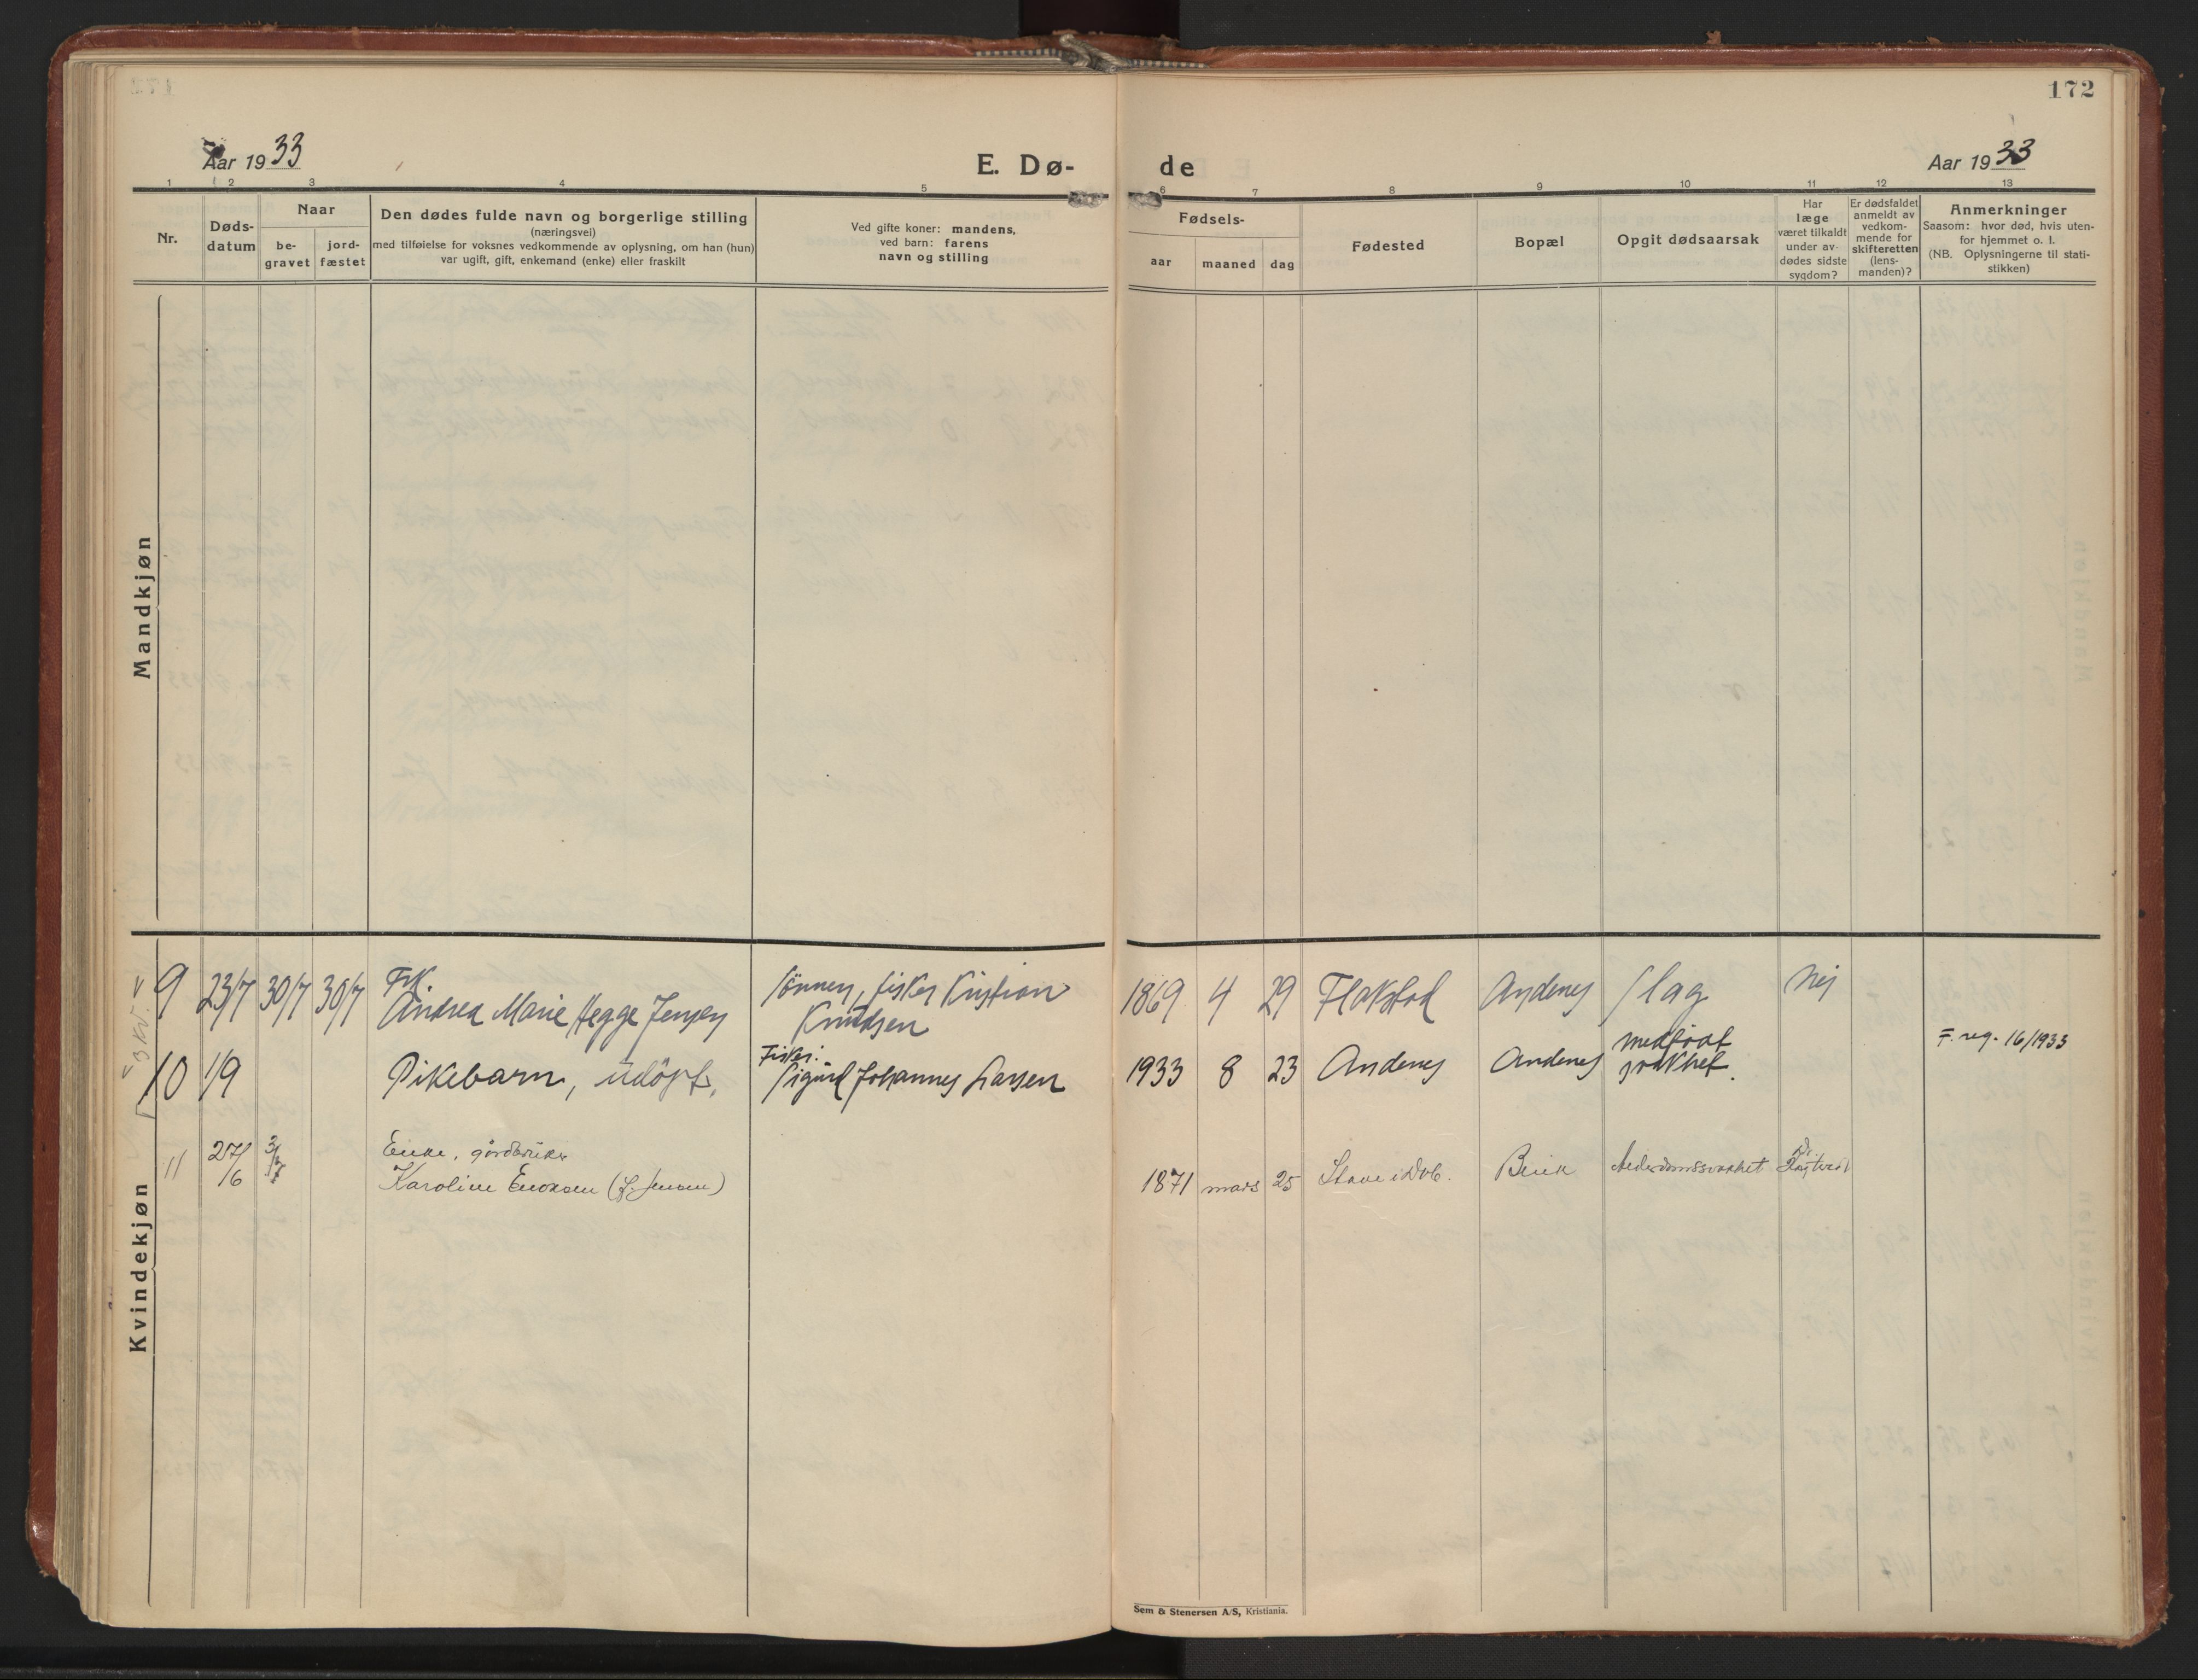 172
Aar 1933
E. Dø-
de
Aar 1933
1 2 3 4 5 6 7 8 9 10 11 12 13
Nr.
Døds-
datum
Naar
be-
gravet
jord-
fæstet
Den dødes fulde navn og borgerlige stilling
(næringsvei)
med tilføielse for voksnes vedkommende av oplysning, om han (hun)
var ugift, gift, enkemand (enke) eller fraskilt
Ved gifte koner: mandens,
ved barn: farens
navn og stilling
Fødsels-
aar
maaned
dag
Fødested
Bopæl
Opgit dødsaarsak
Har
læge
været tilkaldt
under av-
dødes sidste
sygdom?
Er dødsfaldet
anmeldt av
vedkom-
mende for
skifteretten
(lens-
manden)?
Anmerkninger
Saasom: hvor død, hvis uten-
for hjemmet o. l.
(NB. Oplysningerne til stati-
stikken)
Mandkjøn
Kvindekjøn
9 23/7 30/7 30/7
Andrea Marie Hegge Jensen
fisker Kristian
Knudsen
1869 4 29 Flakstad Andenes slag Nej
10 1/9 Pikebarn, udöpt.
Fisker
Sigurd Johannes Larsen
1933 8 23 Andenes Andenes
medfödt
svakhet.
F. reg. 16/1933
11 27/6 3/7
Enke, gårdbruker
Karoline Enoksen (f. Jensen)
1871 mars 25 Stave i Dvb. Bleik Alderdomssvakhet Dr.
Sem & Stenersen A/S, Kristiania.